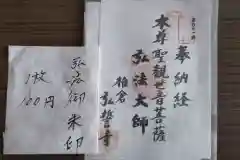 奉納経
本尊聖観世音菩薩
弘法大師
椎倉
弘誓寺
弘法御朱印
1枚
100円